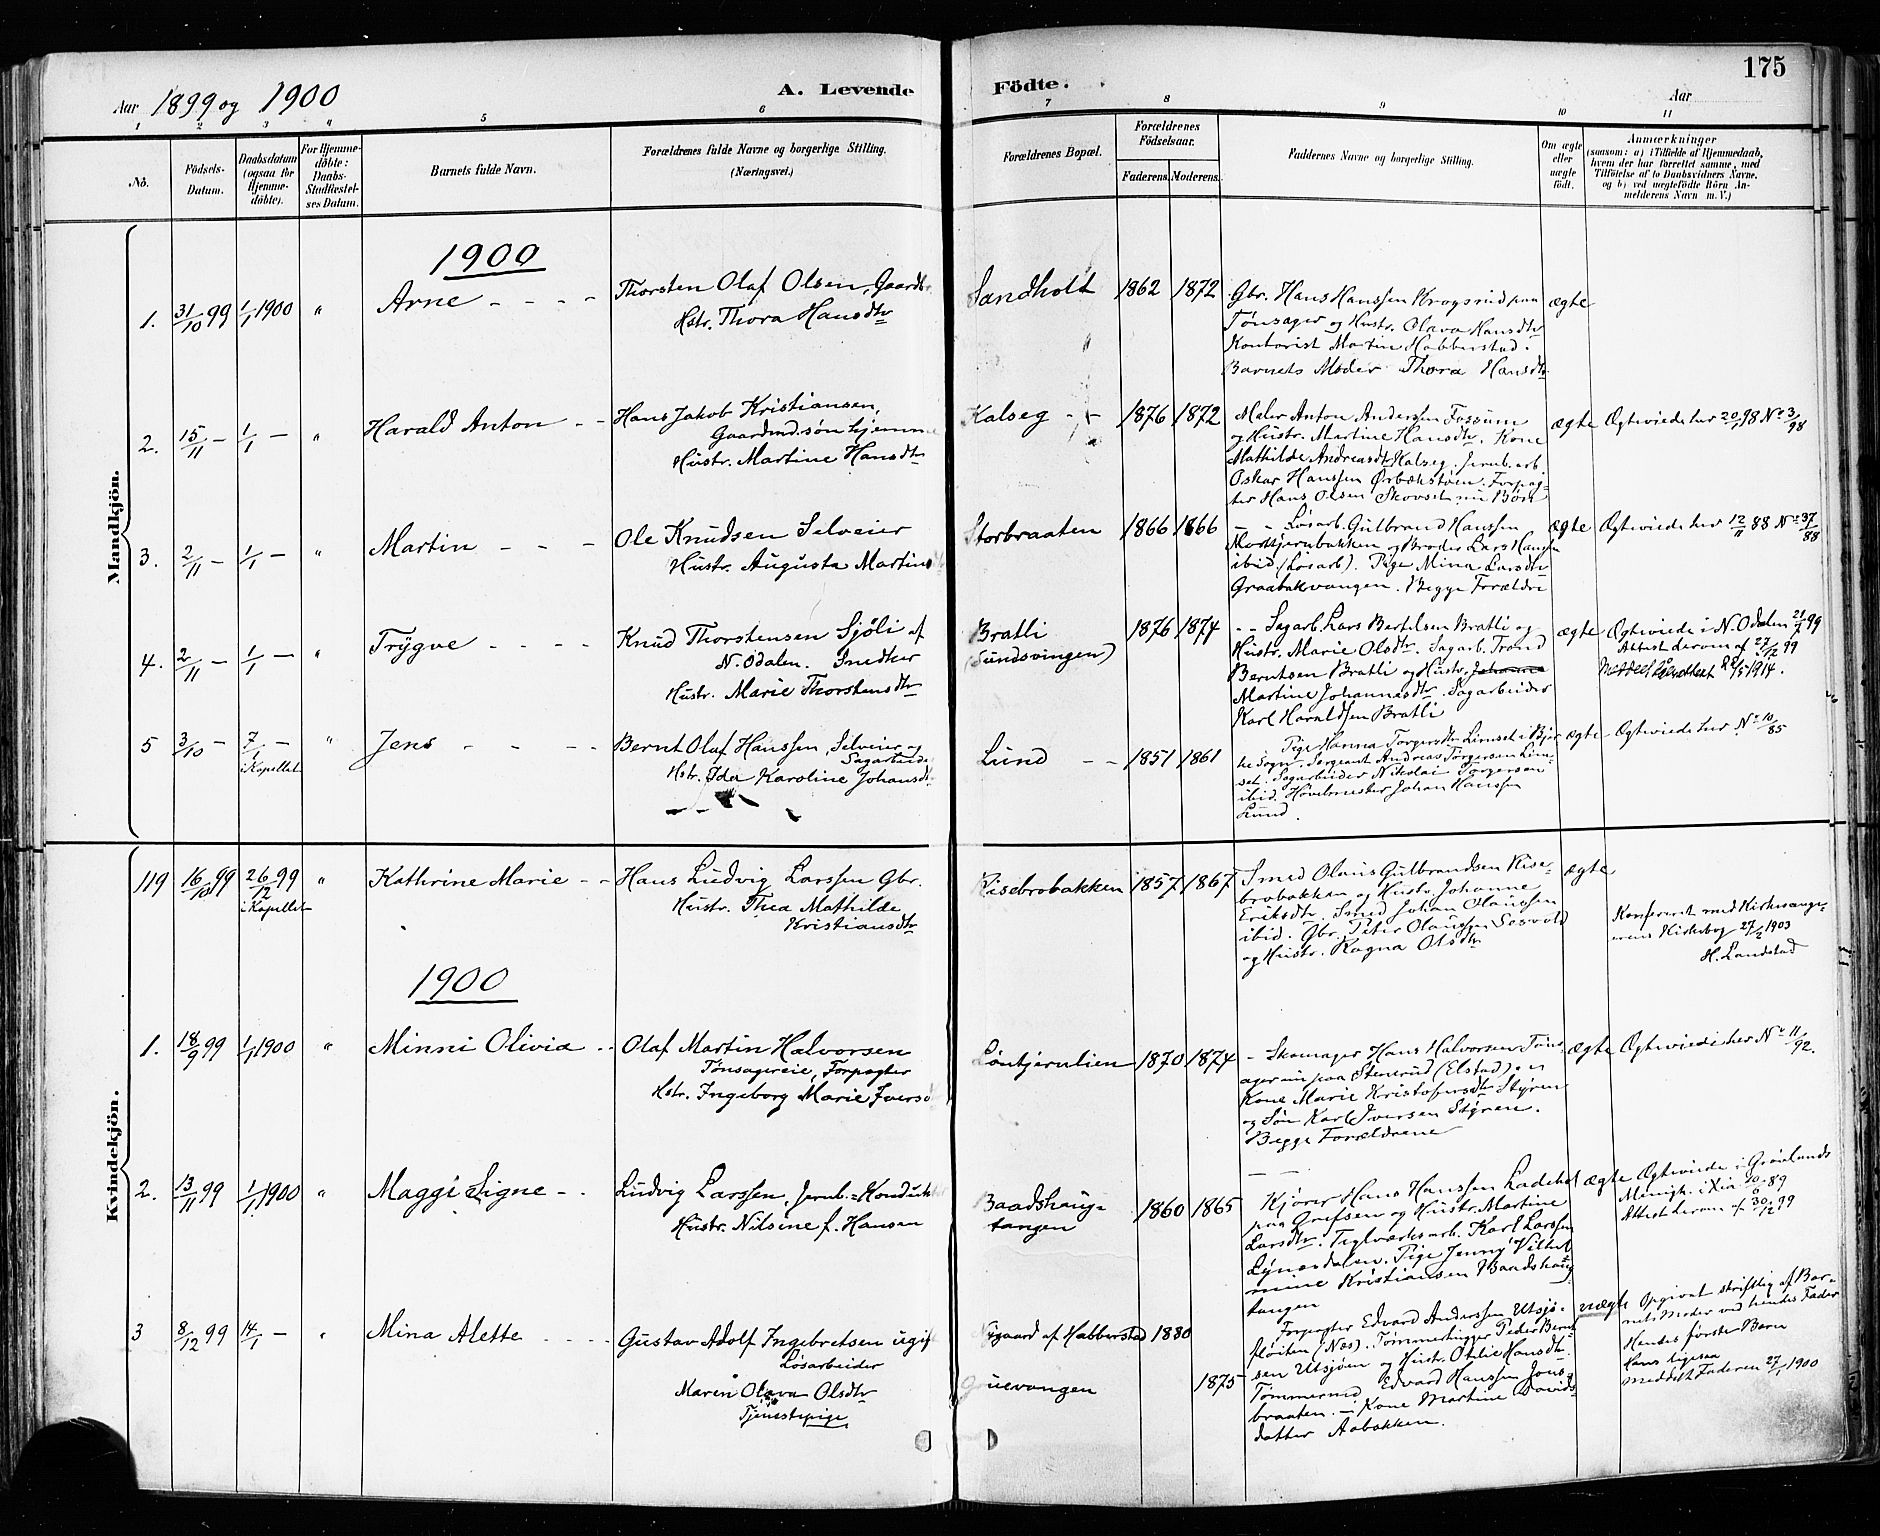 175
Aar 1899 og 1900
A. Levende Födte.
Aar
1 2 3 4 5 6 7 8 9 10 11
No.
Födsels-
Datum.
Daabsdatum
(ogsaa for
Hjemme-
döbte).
For Hjemme-
döbte:
Daabs-
Stadfæstel-
ses Datum.
Barnets fulde Navn.
Forældrenes fulde Navne og borgerlige Stilling.
(Næringsvei.)
Forældrenes Bopæl.
Forældrenes
Födselsaar.
Faderens. Moderens.
Faddernes Navne og borgerlige Stilling.
Om ægte
eller
uægte
födt.
Anmærkninger
(saasom: a) i Tilfælde af Hjemmedaab,
hvem der har forrettet samme, med
Tilföielse af to Daabsvidners Navne.
og b) ved uægtefödte Börn An-
melderens Navn m. V.)
Mandkjön.
1900
1. 31/10 99 1/1 1900 " Arne
Thorsten Olaf Olsen, Gaardbr.
Hstr. Thora Hansdtr
Sandholt 1862 1872
Gbr. Hans Hanssen Krogsrud paa
Tønsager og Hustr. Olava Hansdtr
Kontorist Martin Habberstad.
Barnets Moder Thora Hansdtr
ægte
2. 15/11 — 1/1 — " Harald Anton
Hans Jakob Kristiansen,
Gaardmd.søn hjemme
Hustr. Martine Hansdtr
Kalseg 1876 1872
Maler Anton Andersen Fossum
og Hustr. Martine Hansdtr. Kone
Mathilde Andreasdtr Kalseg. Jernb.arb.
Oskar Hanssen Ørbækstøen. Forpag-
ter Hans Olsen Skovset
ægte
Ægteviede her 20/1 98 No 3/98
3. 2/11 — 1/1 — " Martin
Ole Knudsen Selveier
Hustr. Augusta Martins
Storbraaten 1866 1866
— Løsarb. Gulbrand Hanssen
og Broder Lars Hanssen
ibid (Løsarb). Pige Mina Larsdtr
Graabækvangen. Begge Forældre
ægte
Ægteviede her 12/11 88 No 37/88
4. 2/11 — 1/1 — " Trÿgve
Knud Thorstensen Sjøli af
N. Odalen. Snedker
Hustr. Marie Thorstensdtr
Bratli
(Sundsvingen)
1876 1874
— Sagarb. Lars Bertelsen Bratli og
Hustr. Marie Olsdtr. Sagarb. Trond
Berntsen Bratli og Hustr. Johanna
Martine Johannesdtr. Sagarbeider
Karl Haraldsen Bratli
ægte
Ægteviede i N. Odalen 21/7 99
Attest derom af 27/12 99
1914.
5 3/10 — 7/1 — " Jens
i Kapellet
Bernt Olaf Hanssen, Selveier og
Sagarbeider
Hstr. Ida Karoline Johansdtr
Lund 1851 1861
Pige Hanna Torgersdtr Limset i Bjer-
ke Sogn. Sergeant Andreas Torgersen Lim-
set. Sagarbeider Nikolai Torgersen
ibid. Høvelmester Johan Hanssen
Lund.
ægte
Ægteviede her No 10/85
Kvindekjön.
119 16/10 99 26/12 99 " Kathrine Marie
i Kapellet
Hans Ludvig Larssen Gbr.
Hustr. Thea Mathilde
Kristiansdtr
Risebrobakken 1857 1867
Smed Olaus Gulbrandsen Rise-
brobakken og Hustr. Johanne
Eriksdtr. Smed Johan Olaussen
ibid. Gbr. Peter Olaussen Sesvold
og Hustr. Ragna Olsdtr
ægte
Konfereret med Kirkesange-
rens Kirkebog 27/2 1903
H. Landstad
1900
1. 18/9 99 1/1 1900 " Minni Olivia
Olaf Martin Halvorsen
Tønsagereie, Forpagter
Hstr. Ingeborg Marie Iversd
Løntjernlien 1870 1874
— Skomager Hans Halvorsen Tøns-
ager nu paa Stenerud (Elstad). og
Kone Marie Kristofersdtr Styren
og Søn Karl Iversen Stÿren.
Begge Forældrene
ægte
Ægteviede her No 11/92.
2. 13/11 99 1/1 1900 " Maggi Signe
Ludvig Larssen, Jernb.=Konduktør
Hustr. Nilsine f. Hansen
Baadshaug-
tangen
1860 1865
Kjører Hans Hanssen Ladehol
paa Grefsen og Hustr. Martine
Larsdtr. Teglværksarb. Karl Larssen
Lÿnesdalen. Pige Jenny Vilhel-
mine Kristiansen Baadshaug-
tangen
ægte
Ægteviede i Grønlands
Menigh. i Xia 89
Attest derom af 30/12 99
3 8/12 99 14/1 — " Mina Alette
Gustav Adolf Ingebretsen ugift
Løsarbeider
Maren Olava Olsdtr
Tjenestepige
Nygaard af Habberstad 1880
Gruevangen 1875
Forpagter Edvard Anderssen Utsjø-
fløiten (Næs). Tømmerhugger Peder Bernt-
sen Utsjøen og Hustr. Otilie Hansdtr.
Tømmermd. Edvard Hanssen Jons-
braaten. — Kone Martine Davids-
datter Aabakken.
uægte
Opgivet skriftlig af Bar-
nets Moder ved hendes Fader
Hendes første Barn
Hans ligesaa
Meddelt Faderen 27/1 1900